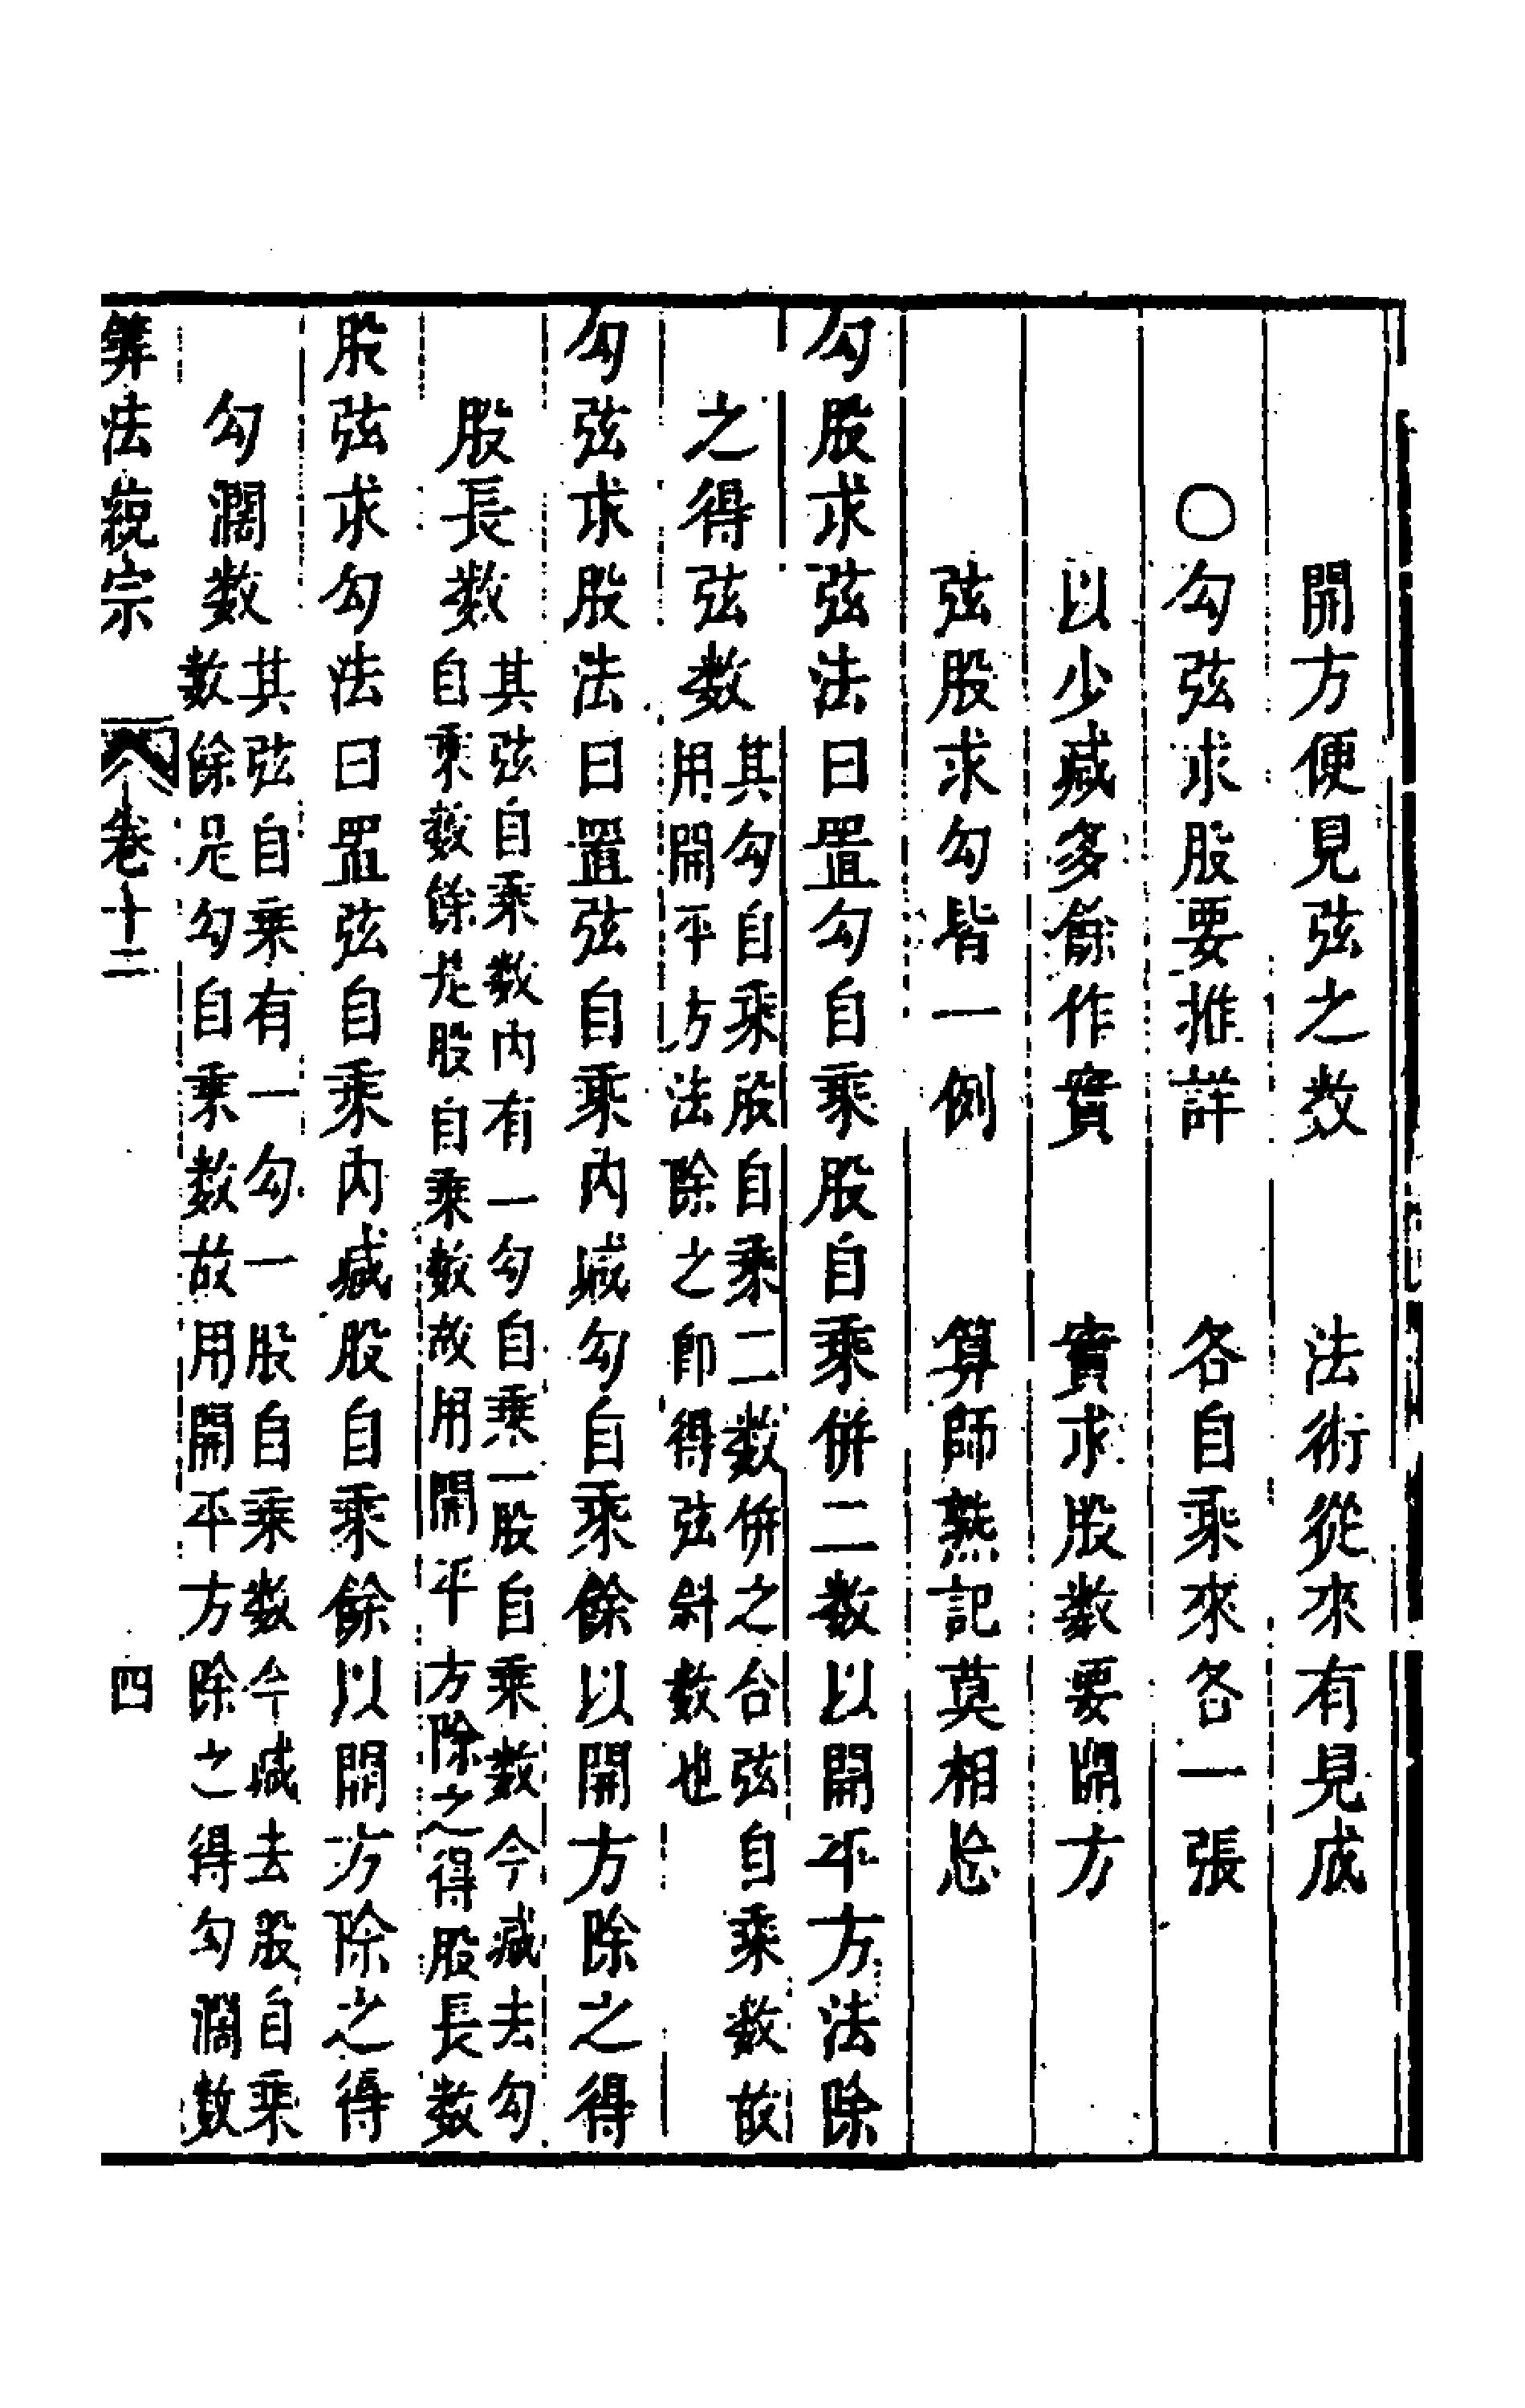 開方便見弦之数　法術從來有見成
○勾弦求股要推詳　各自乘來各一張
以少減多餘作實　實求股数要開方
弦股求勾皆一例　算師熟記莫相忘
勾股求弦法曰置勾自乘股自乘併二数以開平方法除
之得弦数
其勾自乘股自乘二数併之合弦自乘数故
用開平方法除之即得弦斜数也
勾弦求股法曰置弦自乘内減勾自乘餘以開方除之得
股長数
其弦自乘数内有一勾自乘一股自乘数今減去勾
自乘数餘是股自乘数故用開平方除之得股長数
股弦求勾法曰置弦自乘内減股自乘餘以開方除之得
勾濶数
其弦自乘有一勾一股自乘数今減去股自乘
数餘是勾自乘数故用開平方除之得勾濶数
算法統宗　卷十二　四